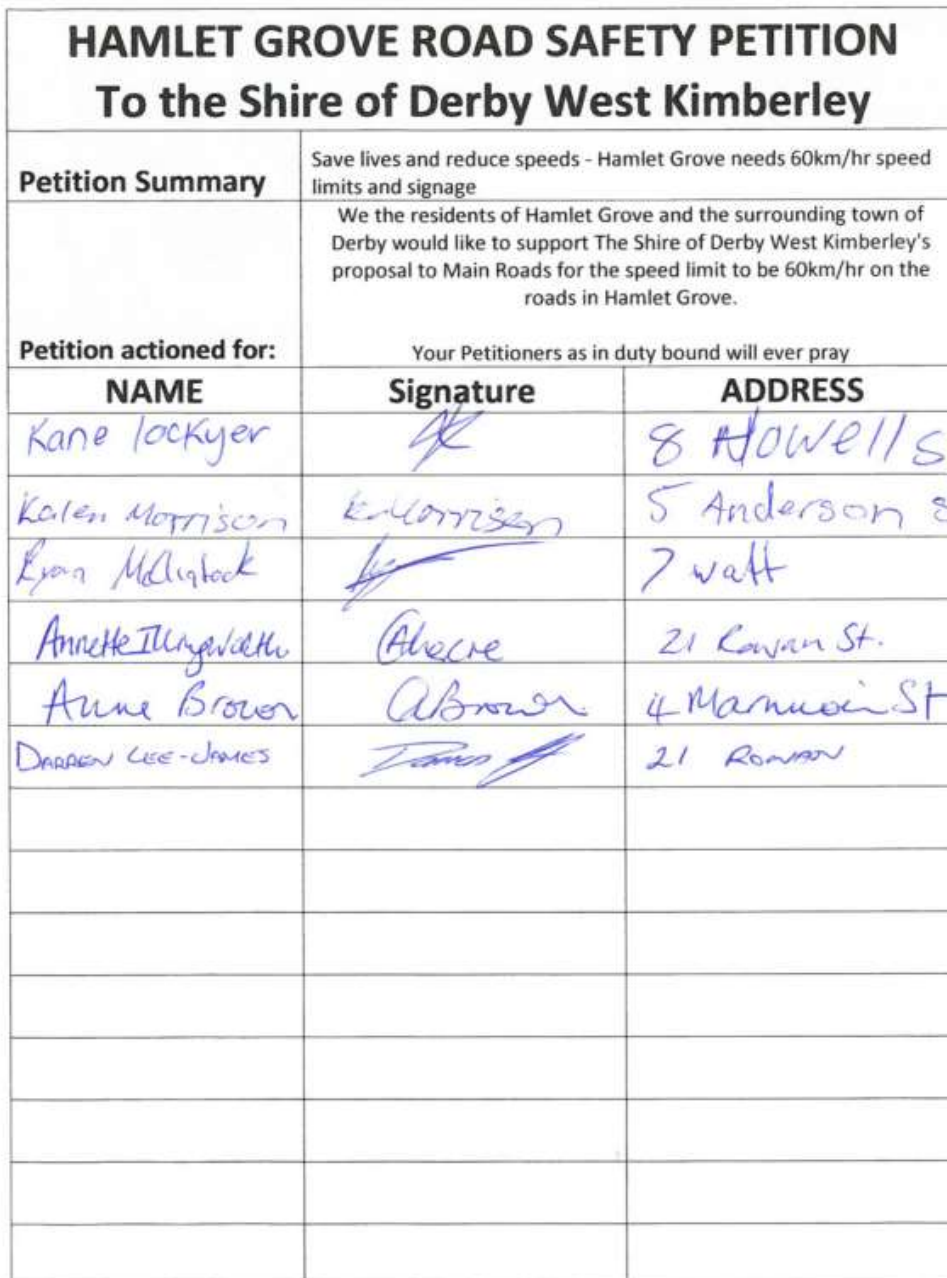 HAMLET GROVE ROAD SAFETY PETITION
To the Shire of Derby West Kimberley
Petition Summary
Save lives and reduce speeds - Hamlet Grove needs 60km/hr speed
limits and signage
We the residents of Hamlet Grove and the surrounding town of
Derby would like to support The Shire of Derby West Kimberley's
proposal to Main Roads for the speed limit to be 60km/hr on the
roads in Hamlet Grove.
Petition actioned for: Your Petitioners as in duty bound will ever pray
NAME Signature ADDRESS
Kane lockyer 8 Howells
Kalen Morrison K Morrison 5 Anderson S
Ryan 7 watt
Annette Illingworth 21 Rowan St.
Anne Brown A Brown 4 St
DARREN LEE-JAMES 21 ROWAN